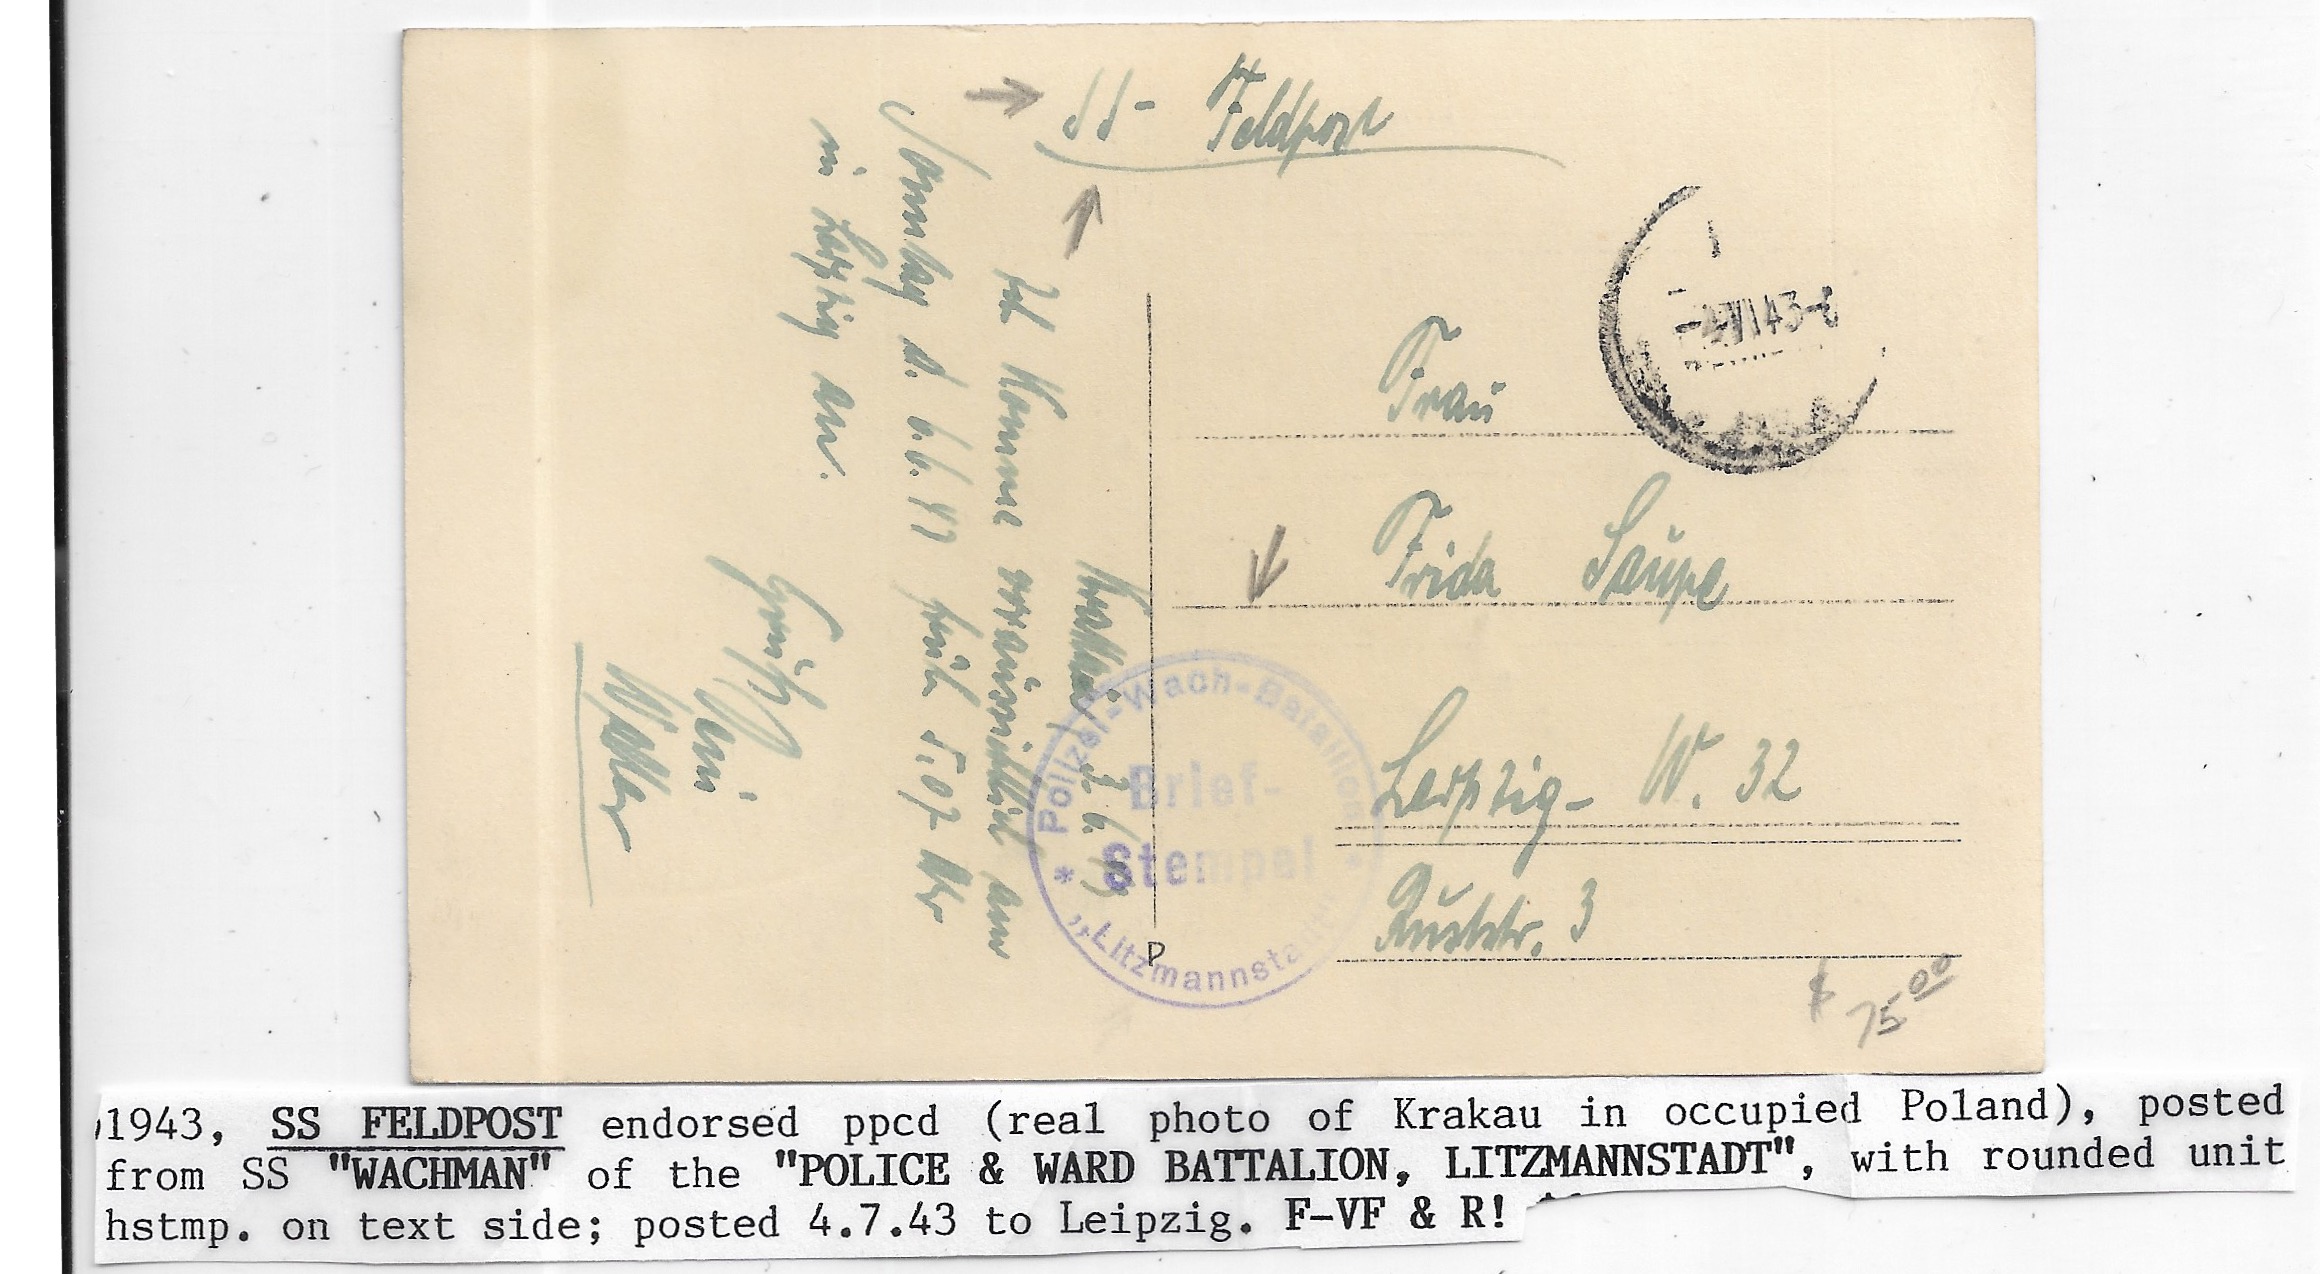 SS-Feldpost
Krakau, 3.6.43
Ich komme voraussichtlich am
Sonntag d. 6.6.43 früh 5.07 Uhr
in Leipzig an.
Grüß
Dein
Walter
-4.VI.43-8
Frau
Frida Saupe
Leipzig- W. 32
str. 3
Polizei-Wach-Bataillon
Brief-
Stempel
* „Litzmannstadt
P
$ 75.00
1943, SS FELDPOST endorsed ppcd (real photo of Krakau in occupied Poland), posted
from SS "WACHMAN" of the "POLICE & WARD BATTALION, LITZMANNSTADT", with rounded unit
hstmp. on text side; posted 4.7.43 to Leipzig. F-VF & R!